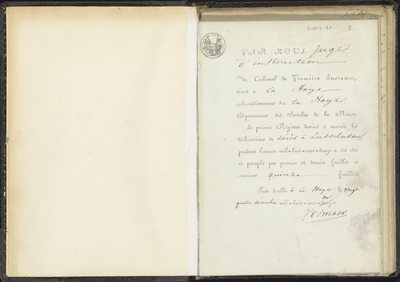 PAR NOUS Juge
d'instruction
du Tribunal de Première Instance,
séant à la Haye
arrondissement de la Haye,
Département des Bouches de la Meuse,
Le présent Registre destiné à recevoir les
déclarations de décès à
pendant l'année mil-huit-cent-douze a été coté
et paraphé par premier et dernier feuillet et
contient quinze feuillets.
Fait double à la Haye le vingt
quatre décembre mil-huit-cent-onze